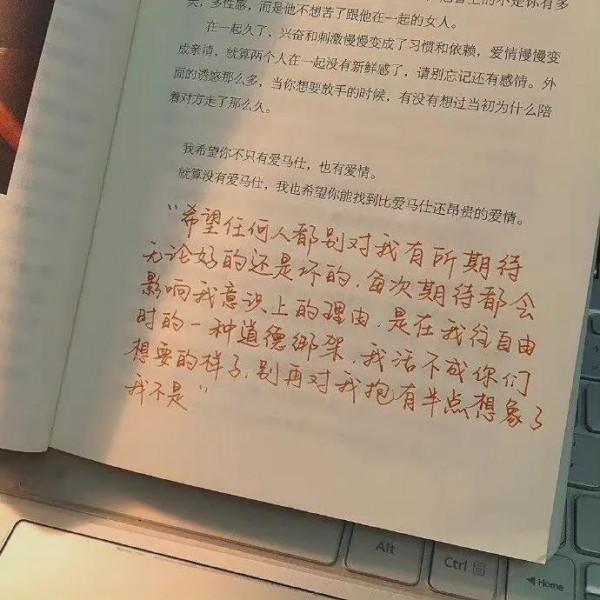 美，多性感，而是他不想苦了跟他在一起的女人。
在一起久了，兴奋和刺激慢慢变成了习惯和依赖，爱情慢慢变
成亲情，就算两个人在一起没有新鲜感了，请别忘记还有感情。外
面的诱惑那么多，当你想要放手的时候，有没有想过当初为什么陪
着对方走了那么久。
我希望你不只有爱马仕，也有爱情。
就算没有爱马仕，我也希望你能找到比爱马仕还昂贵的爱情。
“希望任何人都别对我有所期待
无论好的还是坏的，每次期待都会
影响我意识上的理由，是在我往自由
时的一种道德绑架，我活不成你们
想要的样子，别再对我抱有半点想象了
我不是”
Alt
Ctrl
Home